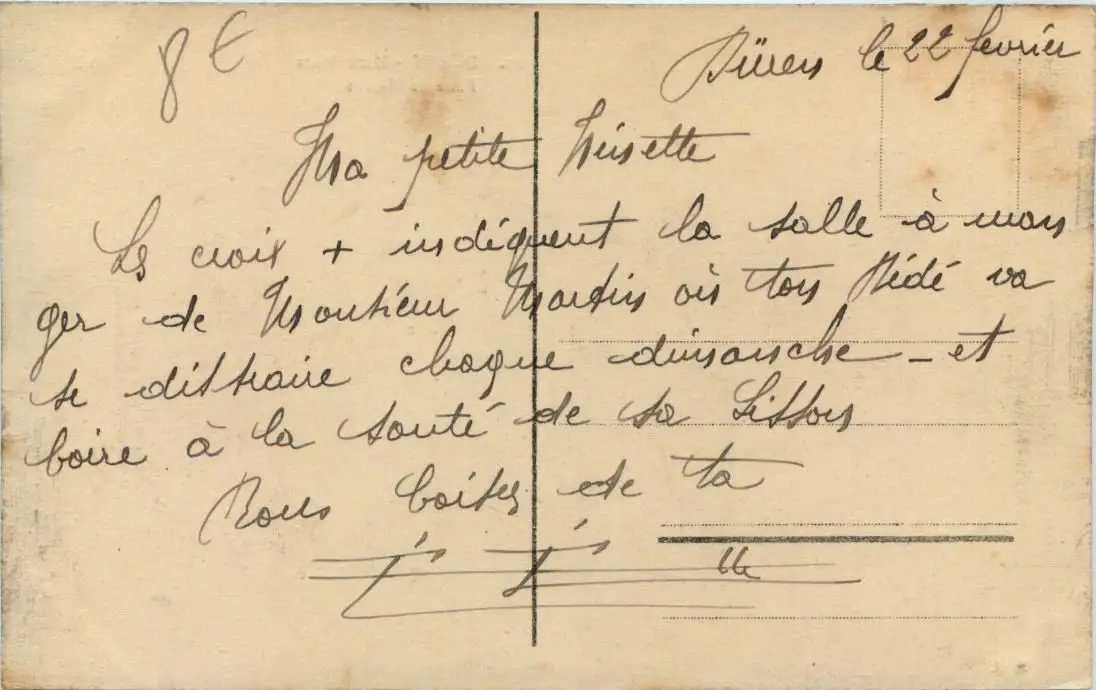 8 €
Düren le 22 février
Ma petite Lisette
Les croix + indiquent la salle à man
ger de Monsieur Martin où ton Dédé va
se distraire chaque dimanche - et
boire à la santé de sa Lisson
Bons baisers de ta